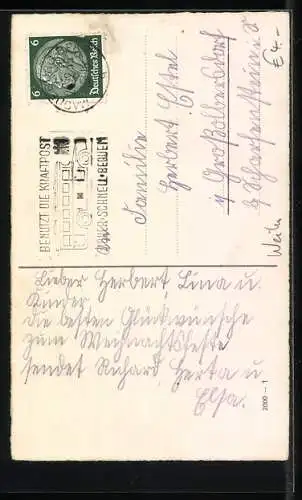 6 6
Deutsches Reich
BENUTZT DIE KRAFTPOST
SICHER·SCHNELL·BEQUEM
Familie
Herbert Estel
Großolbersdorf
b/ Scharfenstein i. Sa
€ 4.-
Weihn
Lieber Herbert, Lina u.
Kinder
Die besten Glückwünsche
zum Weihnachtsfeste
sendet Richard, Herta u.
Elsa.
2000 — 1